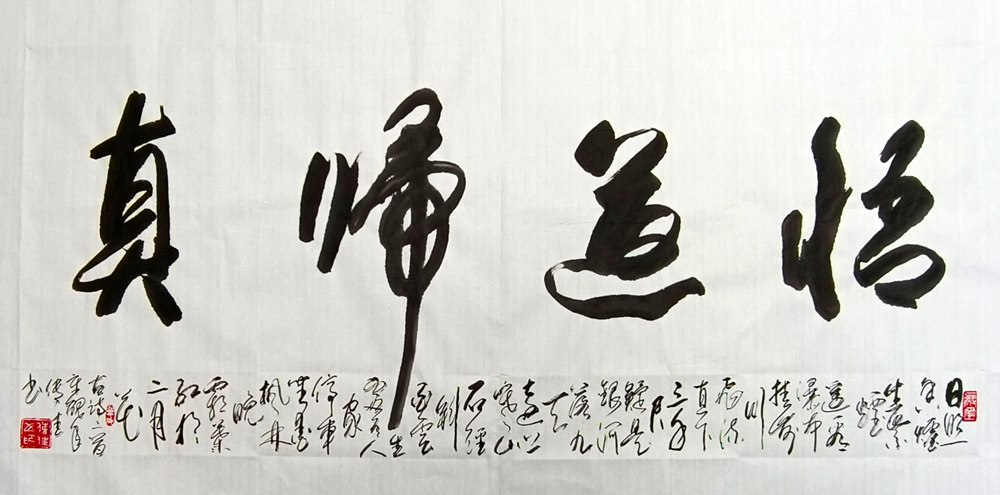 悟道帰真
日照
香爐
生紫
煙
遥看
瀑布
挂前
川
飛流
直下
三千
尺
疑是
銀河
落九
天
遠上
寒山
石徑
斜
白雲
生
處有人
家
停車
坐愛
楓林
晚
霜葉
紅於
二月
花
古詩二首
书